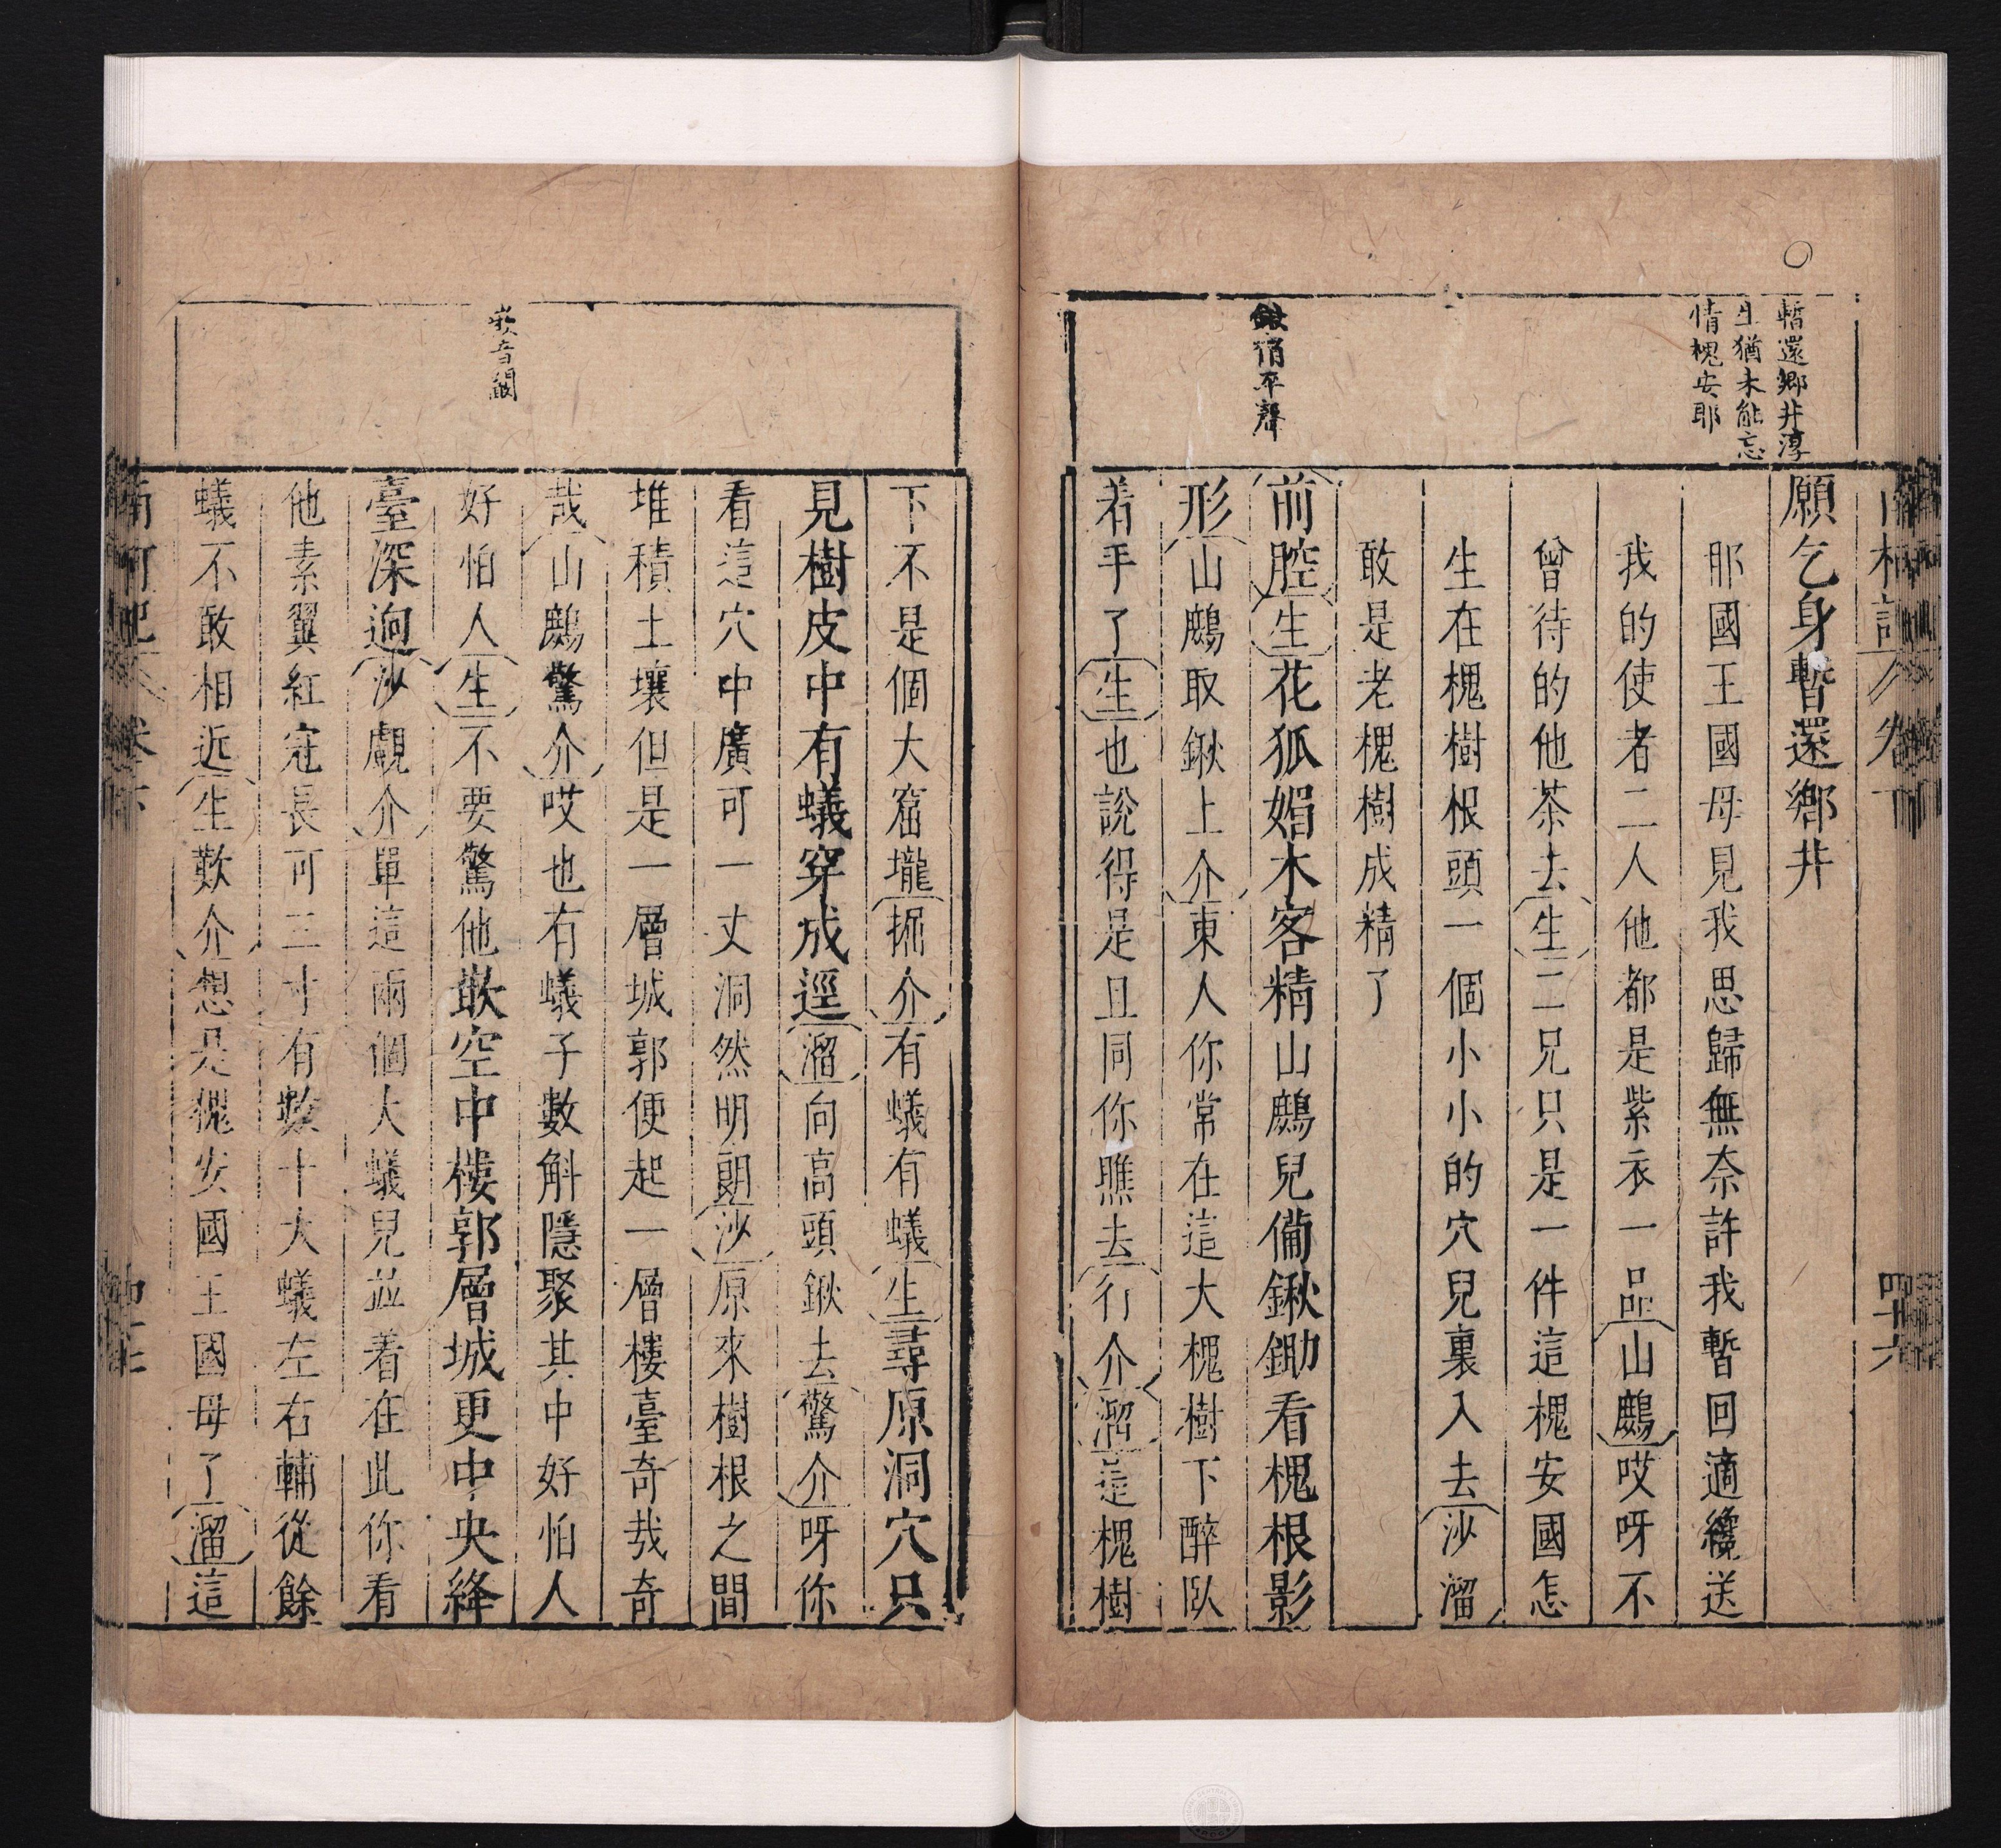 南柯記 卷下 四十六
暫還鄉井淳
生猶未能忘
情槐安耶
願乞身暫還鄉井
那國王國母見我思歸無奈許我暫回適纔送
我的使者二人他都是紫衣一品山鷓哎呀不
曾待的他茶去生二兄只是一件這槐安國怎
生在槐樹根頭一個小小的穴兒裏入去沙溜
敢是老槐樹成精了
鍬俏平聲
前腔生花狐媚木客精山鷓兒備鍬鋤看槐根影
形山鷓取鍬上介東人你常在這大槐樹下醉臥
着手了生也說得是且同你瞧去行介溜這槐樹
下不是個大窟壠掘介有蟻有蟻生尋原洞穴只
見樹皮中有蟻穿成逕溜向高頭鍬去驚介呀你
看這穴中廣可一丈洞然明朗沙原來樹根之間
堆積土壤但是一層城郭便起一層樓臺奇哉奇
哉山鷓驚介哎也有蟻子數斛隱聚其中好怕人
嵌音闞
好怕人生不要驚他嵌空中樓郭層城更中央絳
臺深逈沙覷介單這兩個大蟻兒並着在此你看
他素翼紅冠長可三寸有數十大蟻左右輔從餘
蟻不敢相近生歎介想是槐安國王國母了溜這
南柯記 卷下 四十七